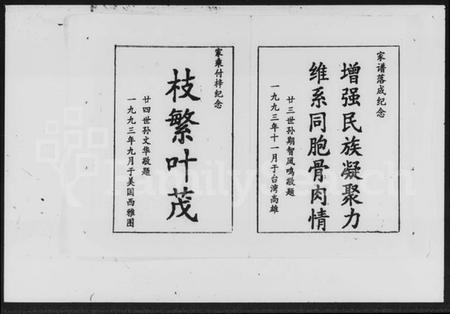 家谱落成纪念
增强民族凝聚力
维系同胞骨肉情
廿三世孙期智凤鸣敬题
一九九三年十一月于台湾高雄
家乘付梓纪念
枝繁叶茂
廿四世孙文华敬题
一九九三年九月于美国西雅图
FamilySearch